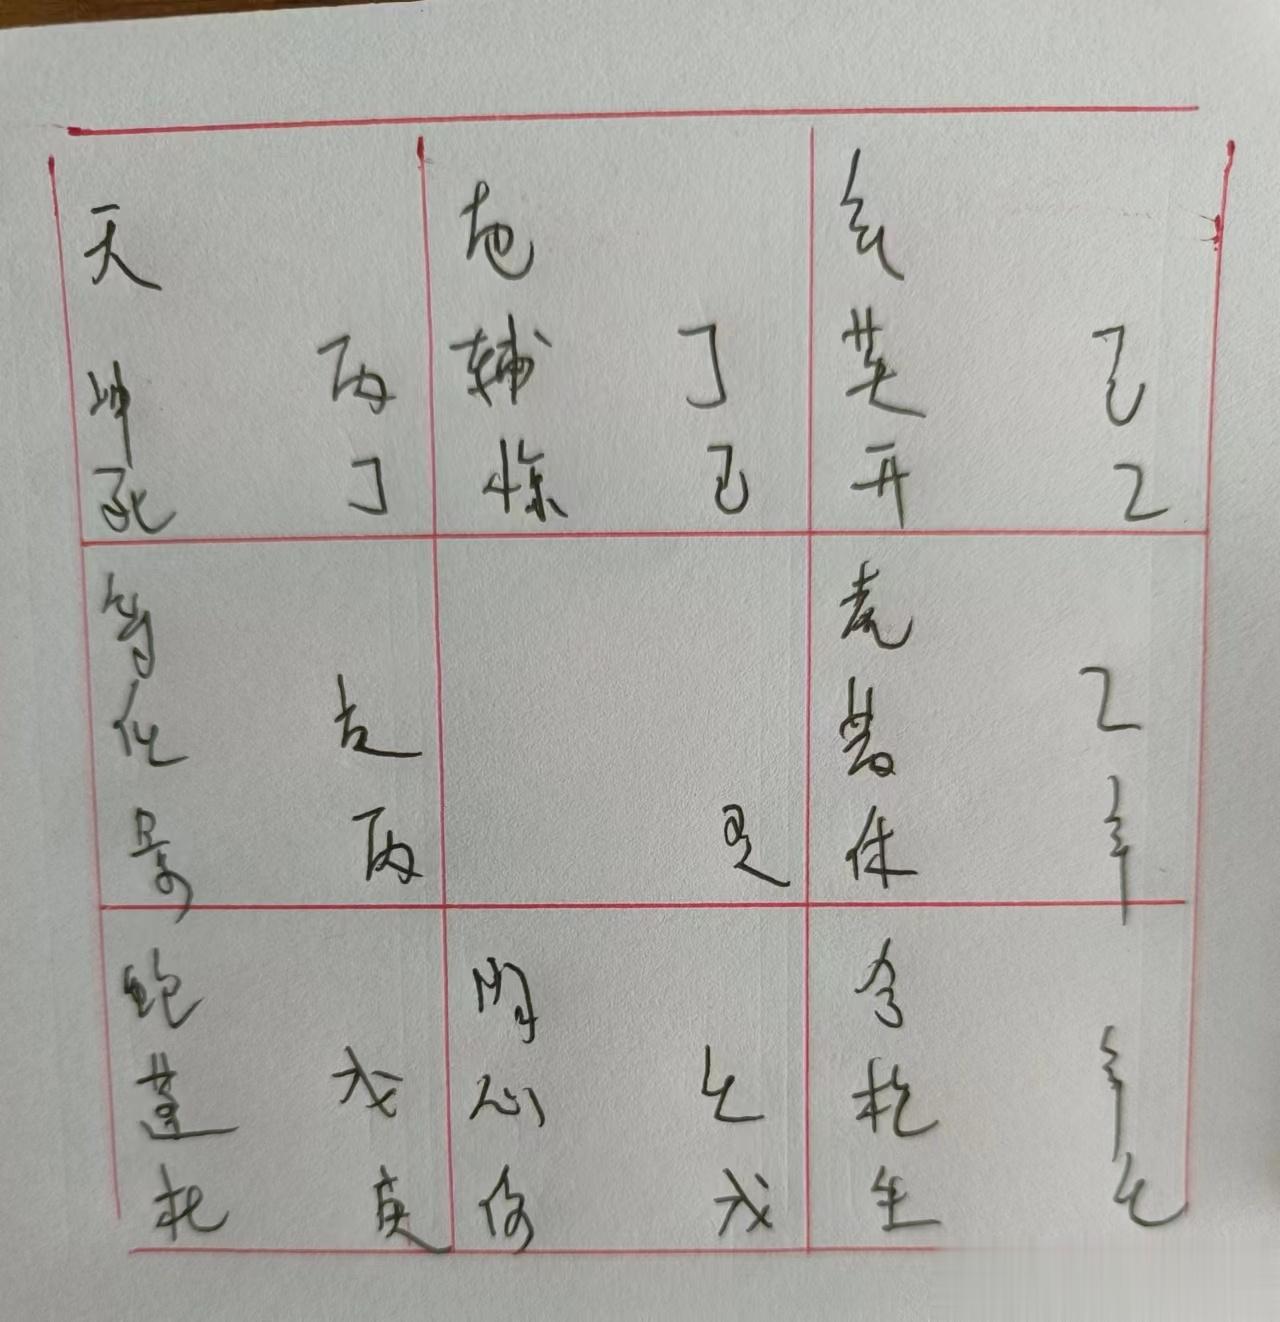 天
冲 丙
死 丁
地
辅 丁
惊 己
玄
英 己
开 乙
符
任 庚
景 丙
癸
虎
芮 乙
休 辛
蛇
蓬 戊
杜 庚
阴
心 壬
伤 戊
合
柱 辛
生 壬